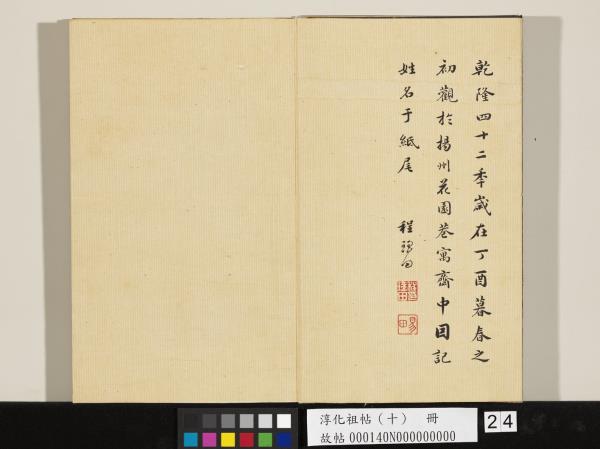 乾隆四十二秊歲在丁酉暮春之
初觀於揚州花園巷寓齋中因記
姓名于紙尾 程瑤田
易田
淳化祖帖（十） 冊
故帖000140N000000000
24